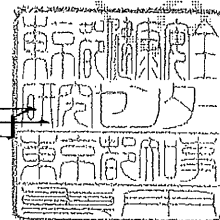 東京都健康安全
研究センター
東京都知事